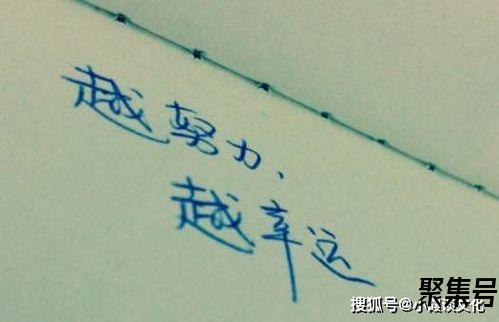 越努力、
越幸运
聚集号
搜狐号@小慢谈文化